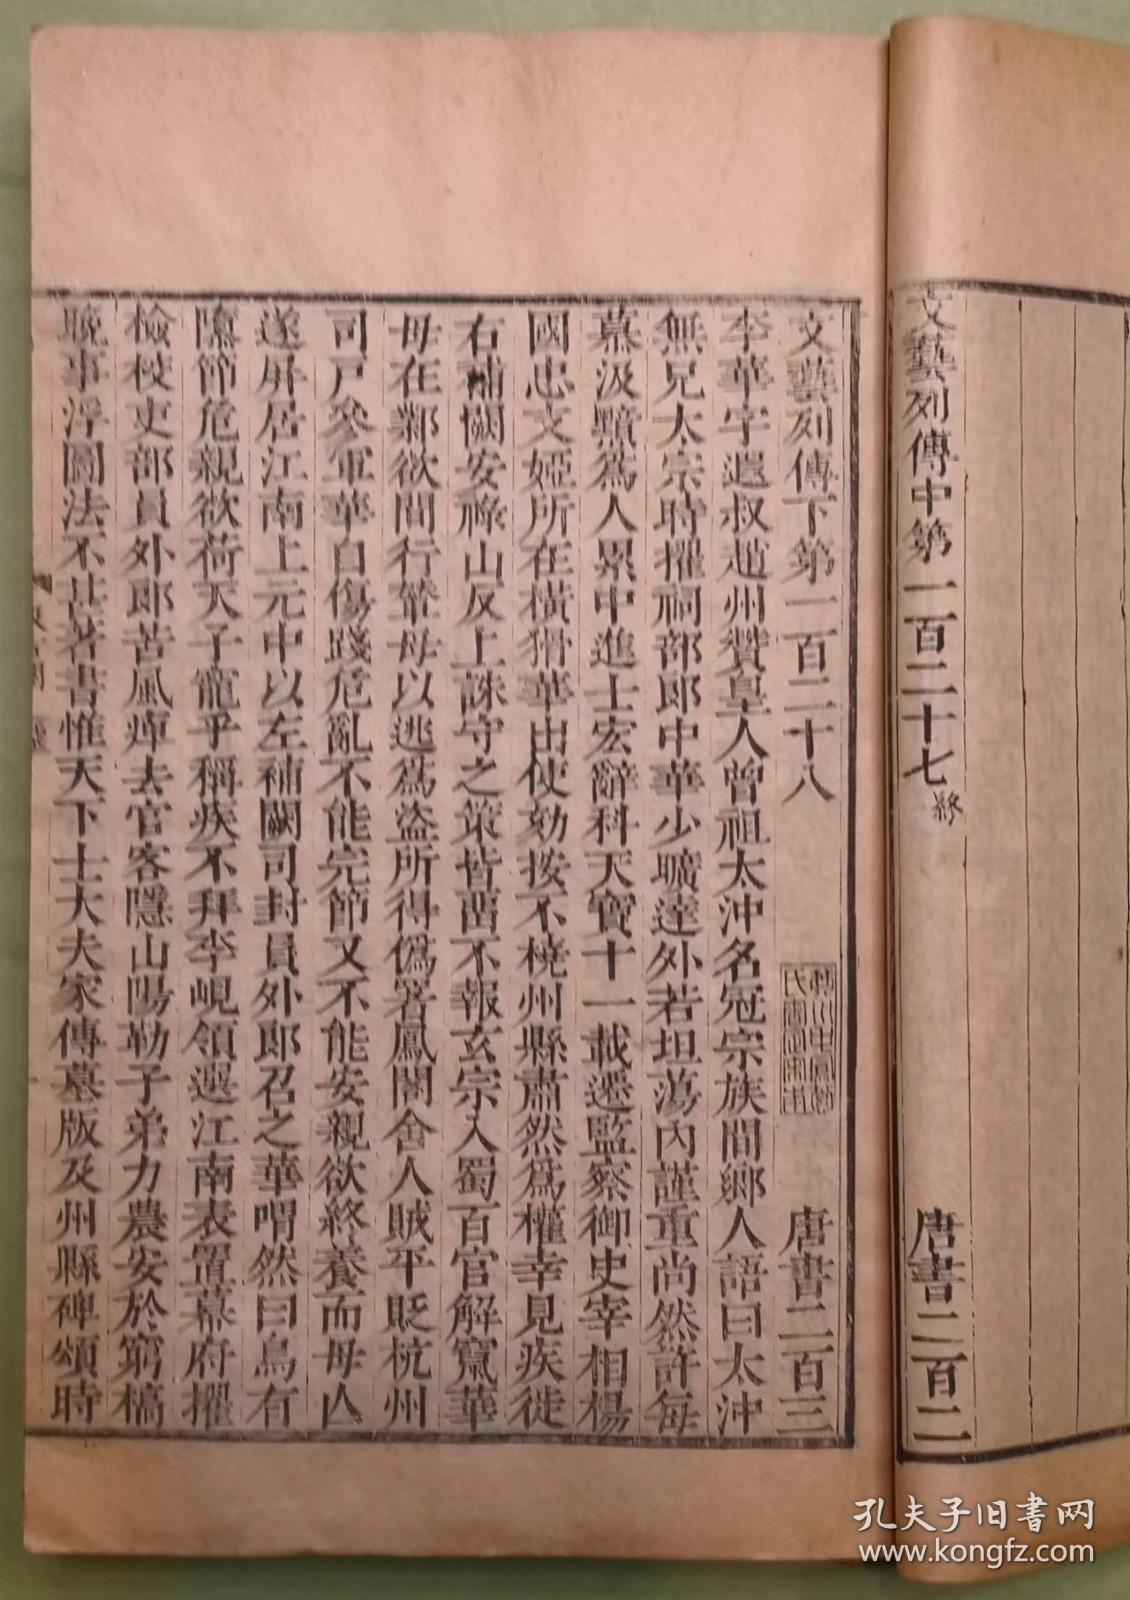 文藝列傳中第一百二十七 終 唐書二百二
文藝列傳下第一百二十八 唐書二百三
李華字遐叔趙州贊皇人曾祖太沖名冠宗族間鄉人語曰太沖
無兄太宗時擢祠部郎中華少曠達外若坦蕩內謹重尚然許每
慕汲黯為人累中進士宏辭科天寶十一載遷監察御史宰相楊
國忠支婭所在橫猾華出使劾按不橈州縣肅然為權幸見疾徙
右補闕安祿山反上誅守之策皆畱不報玄宗入蜀百官解竄華
母在鄴欲間行輦母以逃為盜所得偽署鳳閣舍人賊平貶杭州
司戶參軍華自傷踐危亂不能完節又不能安親欲終養而母亡
遂屏居江南上元中以左補闕司封員外郎召之華喟然曰烏有
隳節危親欲荷天子寵乎稱疾不拜李峴領選江南表置幕府擢
檢校吏部員外郎苦風痺去官客隱山陽勒子弟力農安於窮槁
晚事浮圖法不甚著書惟天下士大夫家傳墓版及州縣碑頌時
孔夫子旧书网
www.kongfz.com